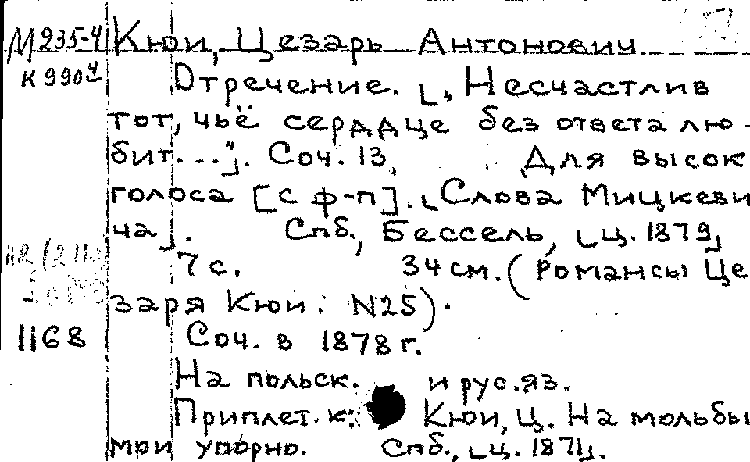 М235-4 Кюи, Цезарь Антонович
К990ч Отречение. [„Несчастлив
тот, чьё сердце без ответа лю-
бит...“]. Соч. 13. Для высок
голоса [с ф-п]. [Слова Мицкеви
ча]. Спб., Бессель, [ц. 1879]
7 с. 34 см. (Романсы Це
заря Кюи. N25).
1168 Соч. в 1878 г.
На польск. и рус.яз.
Приплет. к: Кюи, Ц. На мольбы
мои упорно. Спб., [ц. 1871].